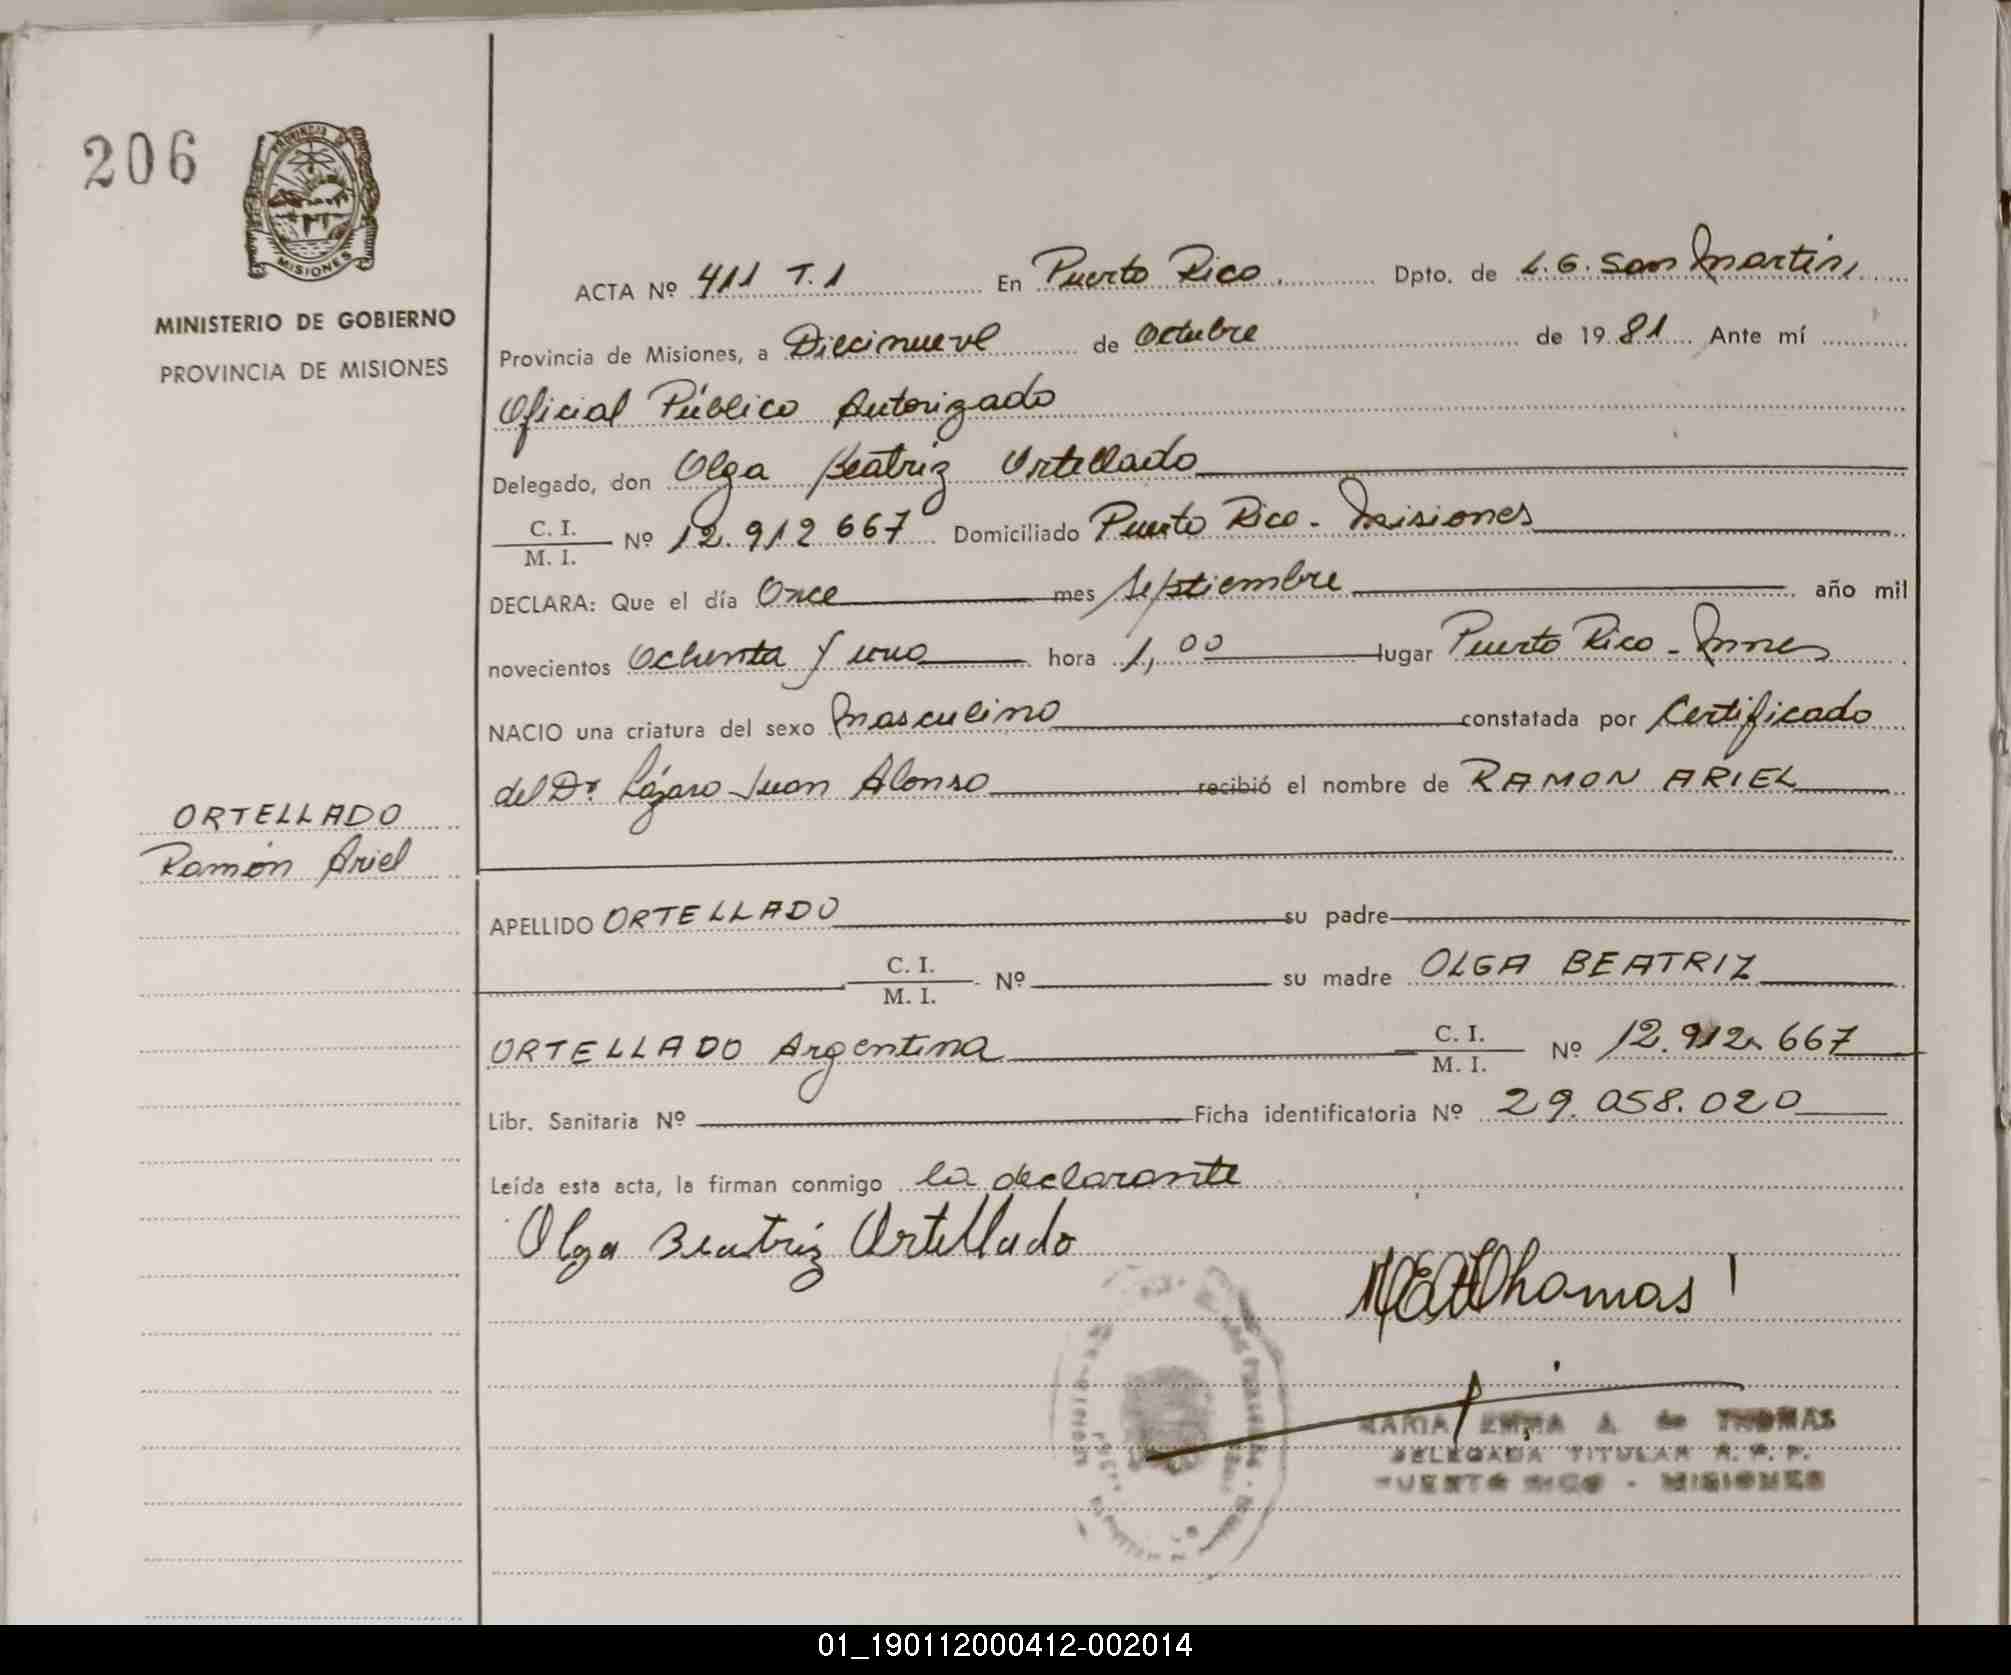 206
PROVINCIA DE
MISIONES
MINISTERIO DE GOBIERNO
PROVINCIA DE MISIONES
ORTELLADO
Ramón Ariel
ACTA Nº 411 T.1 En Puerto Rico. Dpto. de L.G. San Martin,
Provincia de Misiones, a Diecinueve de Octubre de 1981 Ante mí
Oficial Público Autorizado
Delegado, don Olga Beatriz Ortellado
C. I.
M. I. Nº 12.912 667 Domiciliado Puerto Rico - Misiones
DECLARA: Que el día Once mes Septiembre año mil
novecientos Ochenta y uno hora 1,00 lugar Puerto Rico - Mnes
NACIO una criatura del sexo Masculino constatada por Certificado
del Dr. Lázaro Juan Alonso recibió el nombre de RAMON ARIEL
APELLIDO ORTELLADO su padre
C. I.
M. I. Nº su madre OLGA BEATRIZ
ORTELLADO Argentina C. I.
M. I. Nº 12.912.667
Libr. Sanitaria Nº Ficha identificatoria Nº 29.058.020
Leída esta acta, la firman conmigo la declarante
Olga Beatriz Ortellado
Thomas
MARIA EMMA A. de THOMAS
DELEGADA TITULAR R. P. P.
PUERTO RICO - MISIONES
01_190112000412-002014